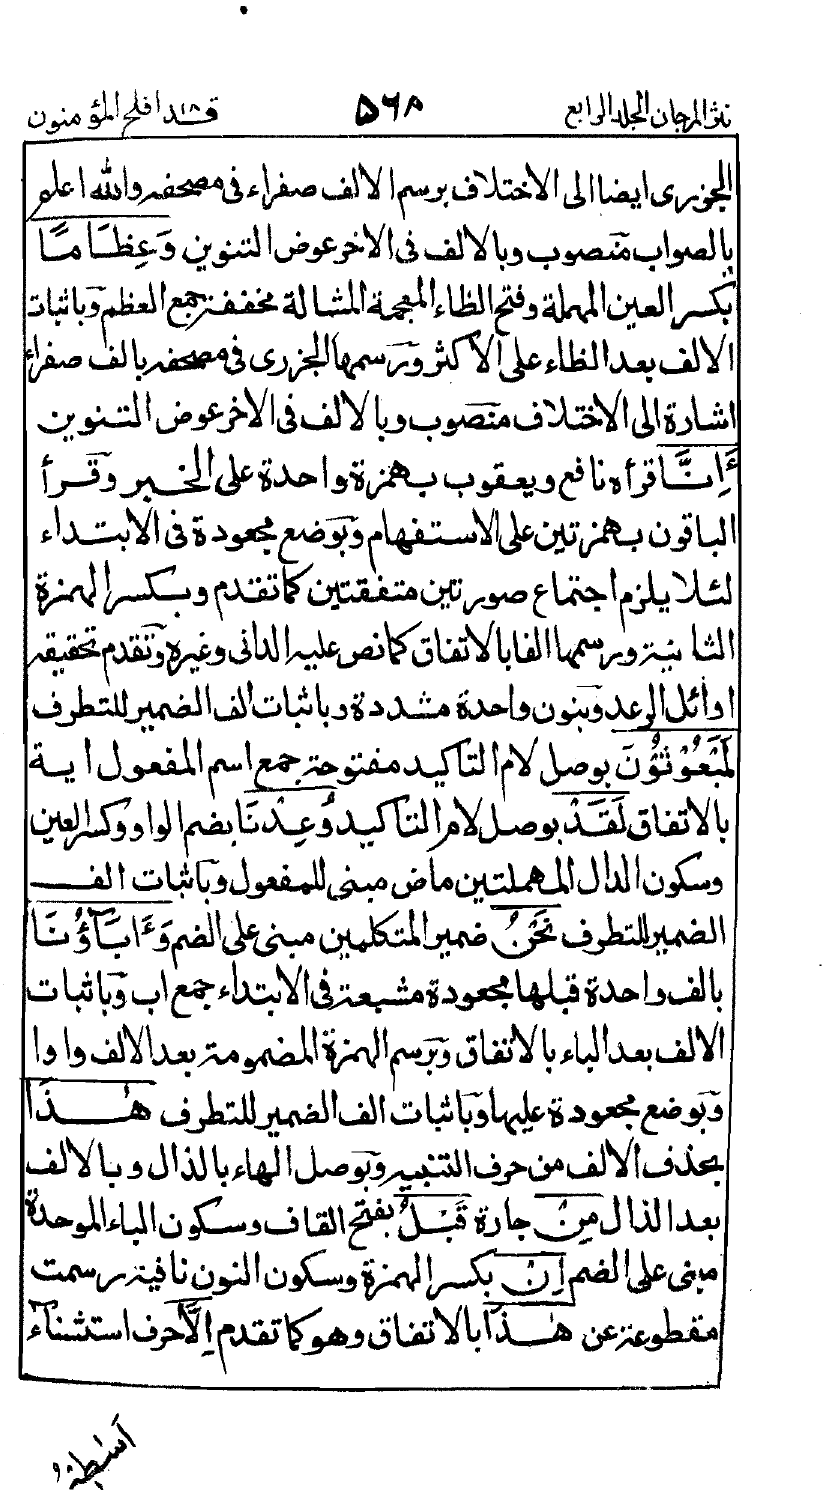 نثر المرجان الجلد الرابع ٥٦٨ قد افلح ١٨ المؤمنون
الجزرى ايضا الى الاختلاف برسم الالف صفراء فى مصحفه والله اعلم
بالصواب منصوب وبالالف فى الاخر عوض التنوين وَعِظَامًا
بكسر العين المهملة وفتح الظاء المعجمة المشالة مخففة جمع العظم وباثبات
الالف بعد الظاء على الاكثر ورسمها الجزرى فى مصحفه بالف صفراء
اشارة الى الاختلاف منصوب وبالالف فى الاخر عوض التنوين
ءَاِنَّا قرأه نافع ويعقوب بهمزة واحدة على الخبر وقرأ
الباقون بهمزتين على الاستفهام وبوضع مجعودة فى الابتداء
لئلا يلزم اجتماع صورتين متفقتين كما تقدم وبكسر الهمزة
الثانية ورسمها الفا بالاتفاق كما نص عليه الدانى وغيره وتقدم تحقيقه
اوائل الرعد وبنون واحدة مشددة وباثبات الف الضمير للتطرف
لَمَبْعُوْثُوْنَ بوصل لام التاكيد مفتوحة جمع اسم المفعول اية
بالاتفاق لَقَدْ بوصل لام التاكيد وُعِدْنَا بضم الواو وكسر العين
وسكون الدال المهملتين ماض مبنى للمفعول وباثبات الف
الضمير للتطرف نَحْنُ ضمير المتكلمين مبنى على الضم وَءَابَآؤُنَا
بالف واحدة قبلها مجعودة مشبعة فى الابتداء جمع اب وباثبات
الالف بعد الباء بالاتفاق وبرسم الهمزة المضمومة بعد الالف واوا
وبوضع مجعودة عليها وباثبات الف الضمير للتطرف هٰذَا
بحذف الالف من حرف التنبيه وبوصل الهاء بالذال وبالالف
بعد الذال مِنْ جارة قَبْلُ بفتح القاف وسكون الباء الموحدة
مبنى على الضم اِنْ بكسر الهمزة وسكون النون نافية رسمت
مقطوعة عن هٰذَا بالاتفاق وهو كما تقدم اِلَّآ حرف استثناء
اَسَاطِيْرُ